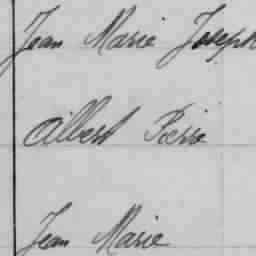 Jean Marie Joseph
Albert Pierre
Jean Marie